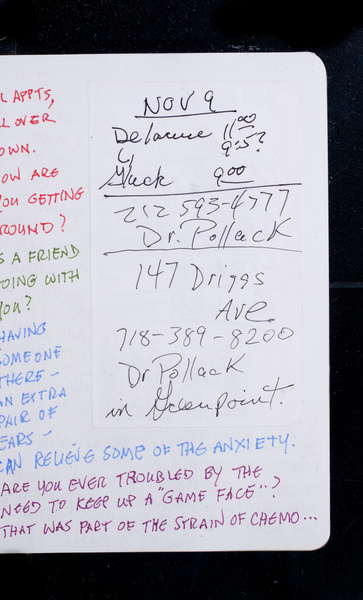 L APPTS,
LL OVER
OWN.
OW ARE
YOU GETTING
ROUND?
S A FRIEND
OING WITH
YOU?
HAVING
SOMEONE
THERE –
AN EXTRA
PAIR OF
EARS –
CAN RELIEVE SOME OF THE ANXIETY.
ARE YOU EVER TROUBLED BY THE
NEED TO KEEP UP A "GAME FACE"?
THAT WAS PART OF THE STRAIN OF CHEMO...
NOV 9
11:00
9:5?
Gluck 9:00
212 593-4777
Dr. Pollack
147 Driggs
Ave.
718-389-8200
Dr Pollack
in Greenpoint.